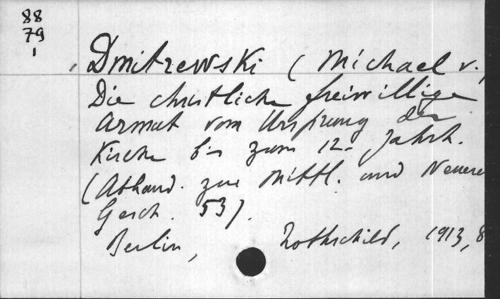 88
79
1
Dmitrewski (Michael v.)
Die christliche freiwillige
Armut vom Ursprung der
Kirche bis zum 12. Jahrh.
(Abhand. zur Mittl. und Neuere
Gesch. 53).
Berlin, Rothschild, 1913, 8